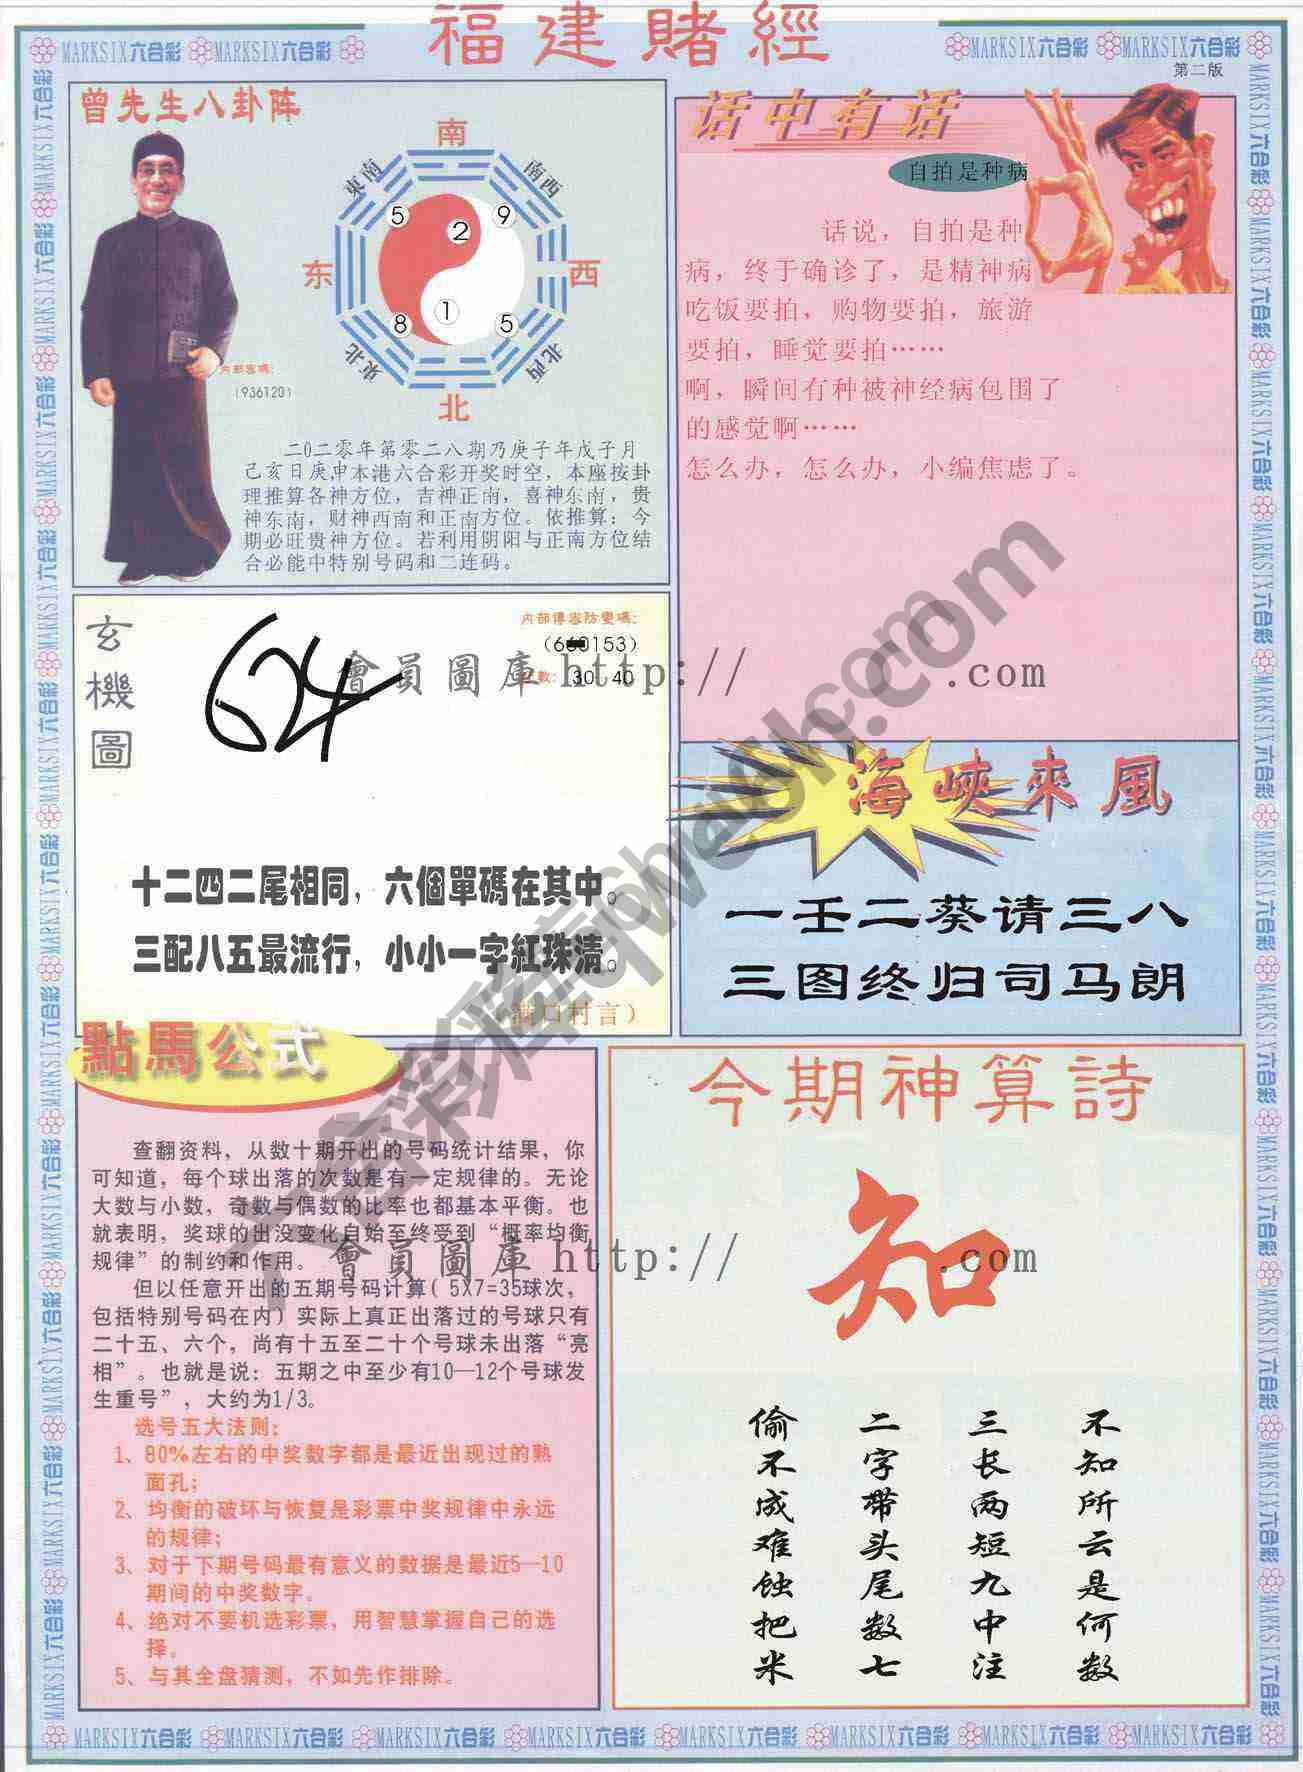 福建賭經
MARKSIX六合彩 MARKSIX六合彩
MARKSIX六合彩 MARKSIX六合彩
第二版
曾先生八卦阵
南
東南
南西
5
2
9
东
西
8
1
5
東北
北西
北
内部密碼:
(936120)
二0二零年第零二八期乃庚子年戊子月
己亥日庚申本港六合彩开奖时空，本座按卦
理推算各神方位，吉神正南，喜神东南，贵
神东南，财神西南和正南方位。依推算：今
期必旺贵神方位。若利用阴阳与正南方位结
合必能中特别号码和二连码。
话中有话
自拍是种病
话说，自拍是种
病，终于确诊了，是精神病
吃饭要拍，购物要拍，旅游
要拍，睡觉要拍……
啊，瞬间有种被神经病包围了
的感觉啊……
怎么办，怎么办，小编焦虑了。
玄機圖
624
(6 0153)
數: 30 40
會員圖庫 http:// .com
十二四二尾相同，六個單碼在其中。
三配八五最流行，小小一字紅珠清。
满口村言）
海峽來風
一壬二葵请三八
三图终归司马朗
點馬公式
查翻资料，从数十期开出的号码统计结果，你
可知道，每个球出落的次数是有一定规律的。无论
大数与小数，奇数与偶数的比率也都基本平衡。也
就表明，奖球的出没变化自始至终受到“概率均衡
规律”的制约和作用。
但以任意开出的五期号码计算( 5X7=35球次，
包括特别号码在内）实际上真正出落过的号球只有
二十五、六个，尚有十五至二十个号球未出落“亮
相”。也就是说：五期之中至少有10—12个号球发
生重号”，大约为1/3。
选号五大法则:
1、80%左右的中奖数字都是最近出现过的熟
面孔;
2、均衡的破坏与恢复是彩票中奖规律中永远
的规律;
3、对于下期号码最有意义的数据是最近5—10
期间的中奖数字。
4、绝对不要机选彩票，用智慧掌握自己的选
择。
5、与其全盘猜测，不如先作排除。
會員圖庫 http:// .com
今期神算詩
知
不知所云是何数
三长两短九中注
二字带头尾数七
偷不成难蚀把米
MARKSIX六合彩 MARKSIX六合彩 MARKSIX六合彩 MARKSIX六合彩 MARKSIX六合彩 MARKSIX六合彩 MARKSIX六合彩 MARKSIX六合彩